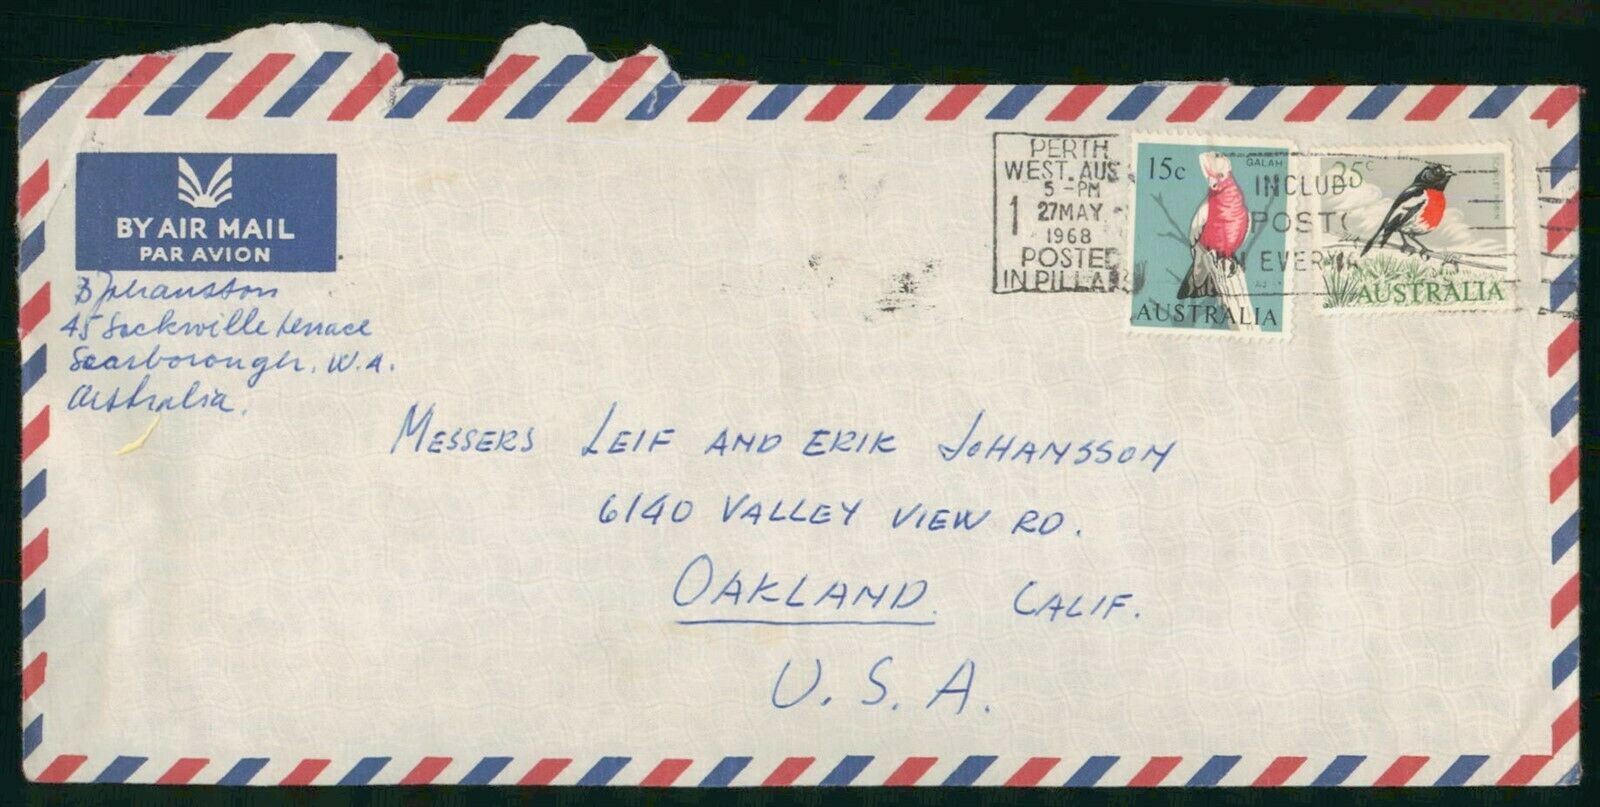 BY AIR MAIL
PAR AVION
B Johansson
45 Sackville terrace
Scarborough. W.A.
Australia.
PERTH
WEST. AUS
5 - PM
1 27MAY
1968
POSTED
IN PILLAR
15c GALAH
AUSTRALIA
25c
AUSTRALIA
INCLUD
POSTC
IN EVERY A
MESSERS LEIF AND ERIK JOHANSSON
6140 VALLEY VIEW RD.
OAKLAND. CALIF.
U.S.A.